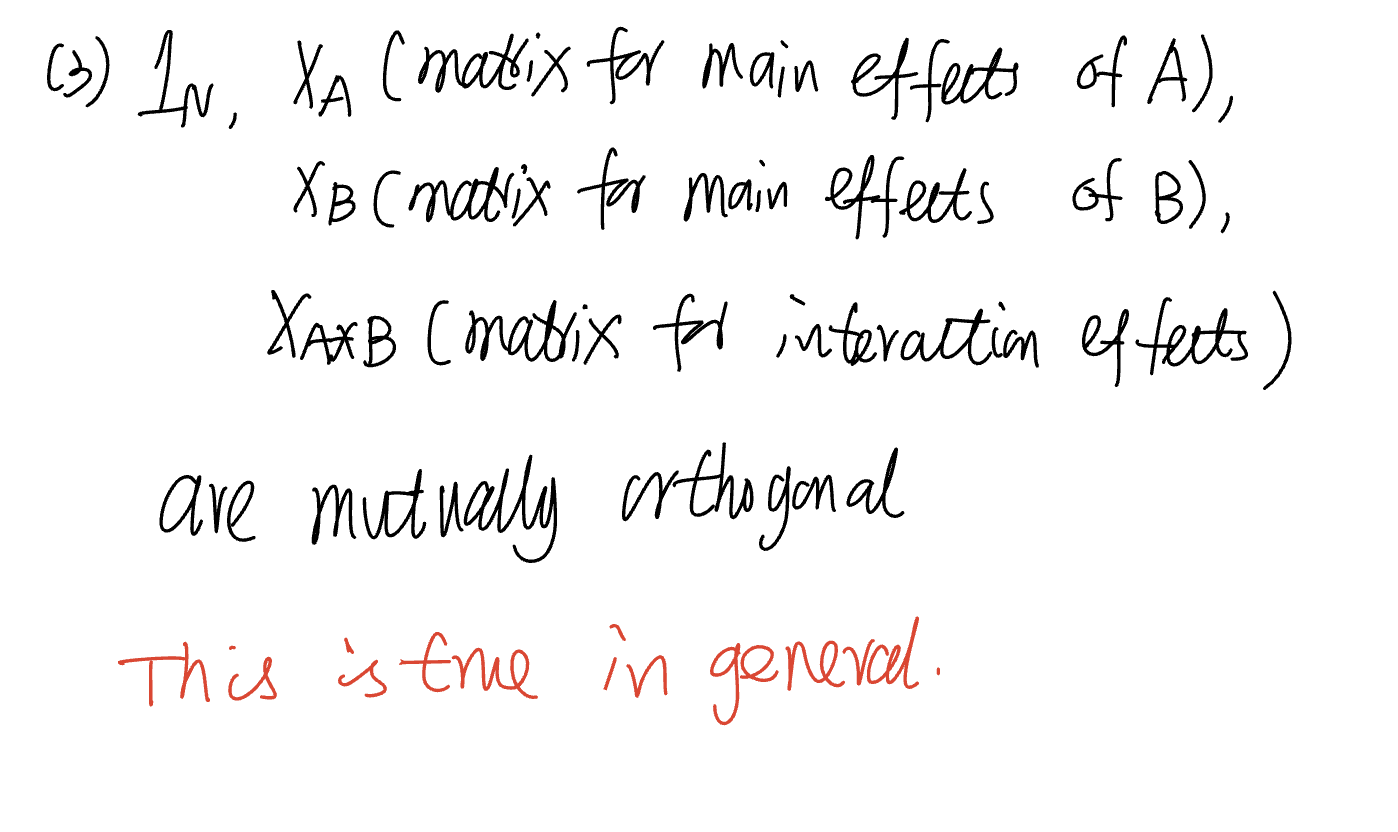 (3) 1N, XA (matrix for main effects of A),
XB (matrix for main effects of B),
XA×B (matrix for interaction effects)
are mutually orthogonal
This is true in general.